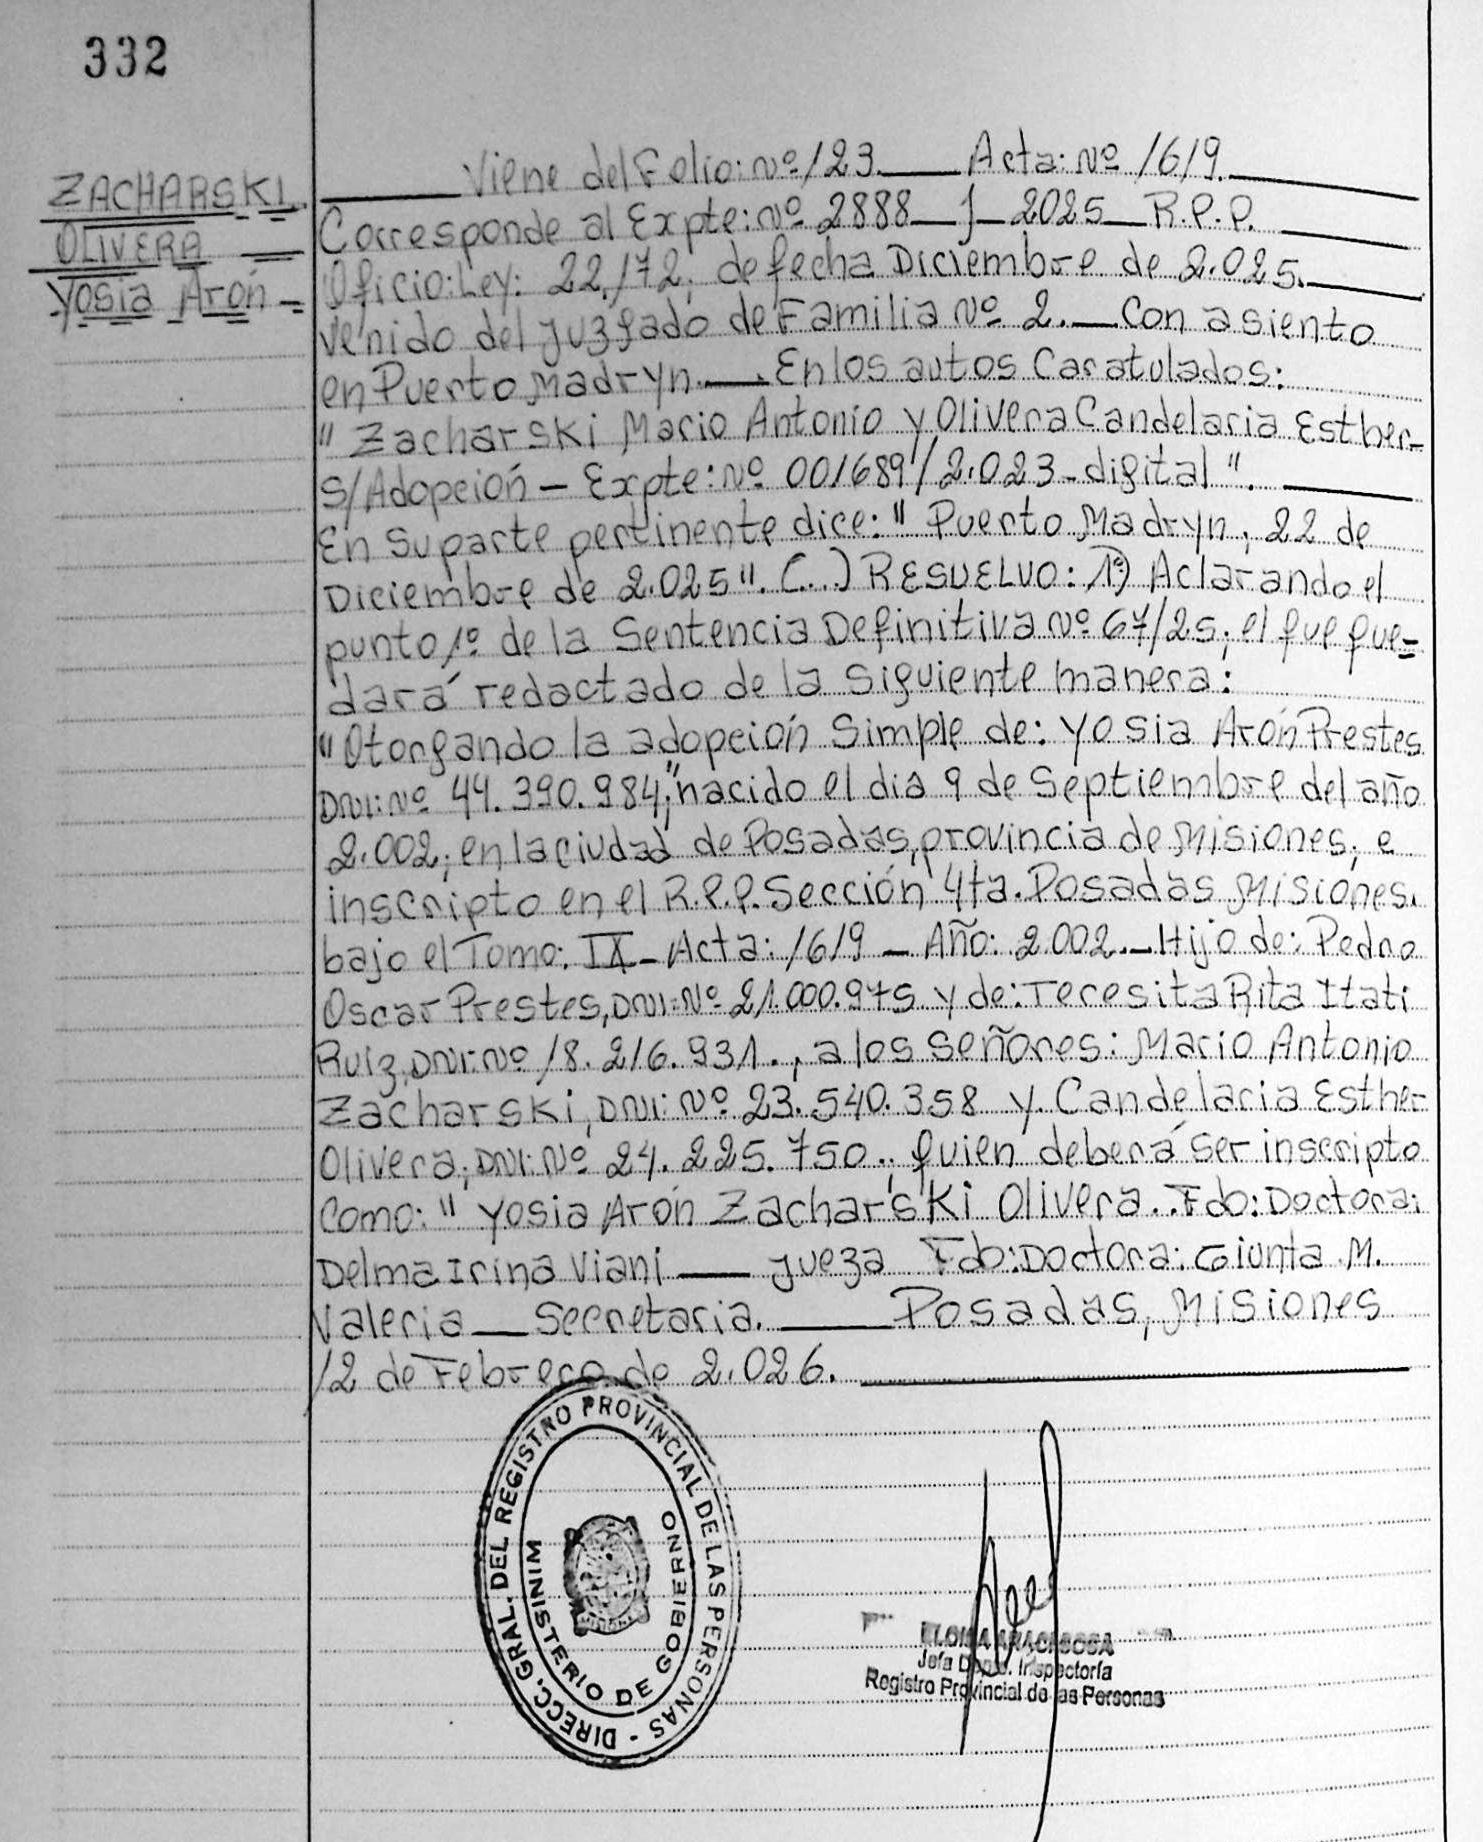 332
ZACHARSKI.
OLIVERA
Yosia Arón
Viene del Folio: Nº 123. Acta: Nº 1619.
Corresponde al Expte: Nº 2888 J 2025 R.P.P.
Oficio: Ley: 22.172; de fecha Diciembre de 2.025.
venido del juzgado de Familia Nº 2. Con asiento
en Puerto Madryn. En los autos Caratulados:
" Zacharski Mario Antonio y Olivera Candelaria Esther
S/Adopción – Expte: Nº 001689/2.023 - digital ".
En Su parte pertinente dice: " Puerto Madryn, 22 de
Diciembre de 2.025". (...) RESUELVO: 1º) Aclarando el
punto 1º de la Sentencia Definitiva Nº 67/25; el que que=
dará redactado de la siguiente manera:
" Otorgando la adopción Simple de: Yosia Arón Prestes
DNI: Nº 44.390.984;" nacido el dia 9 de Septiembre del año
2.002; en la ciudad de Posadas, provincia de Misiones; e
inscripto en el R.P.P. Sección 4ta. Posadas Misiones.
bajo el Tomo: IX - Acta: 1619 - Año: 2.002. - Hijo de: Pedro
Oscar Prestes, DNI: Nº 21.000.975 y de: Teresita Rita Itati
Ruiz, DNI: Nº 18.216.931., a los Señores: Mario Antonio
Zacharski, DNI: Nº 23.540.358 y Candelaria Esther
Olivera; DNI: Nº 24.225.750.; quien deberá ser inscripto
Como: " Yosia Arón Zacharski Olivera. Fdo: Doctora:
Delma Irina Viani — Jueza Fdo: Doctora: Giunta M.
Valeria — Secretaria. Posadas, Misiones
12 de Febrero de 2.026.
DIRECC. GRAL. DEL REGISTRO PROVINCIAL DE LAS PERSONAS -
MINISTERIO DE GOBIERNO
Jefa Dpto. Inspectoría
Registro Provincial de las Personas